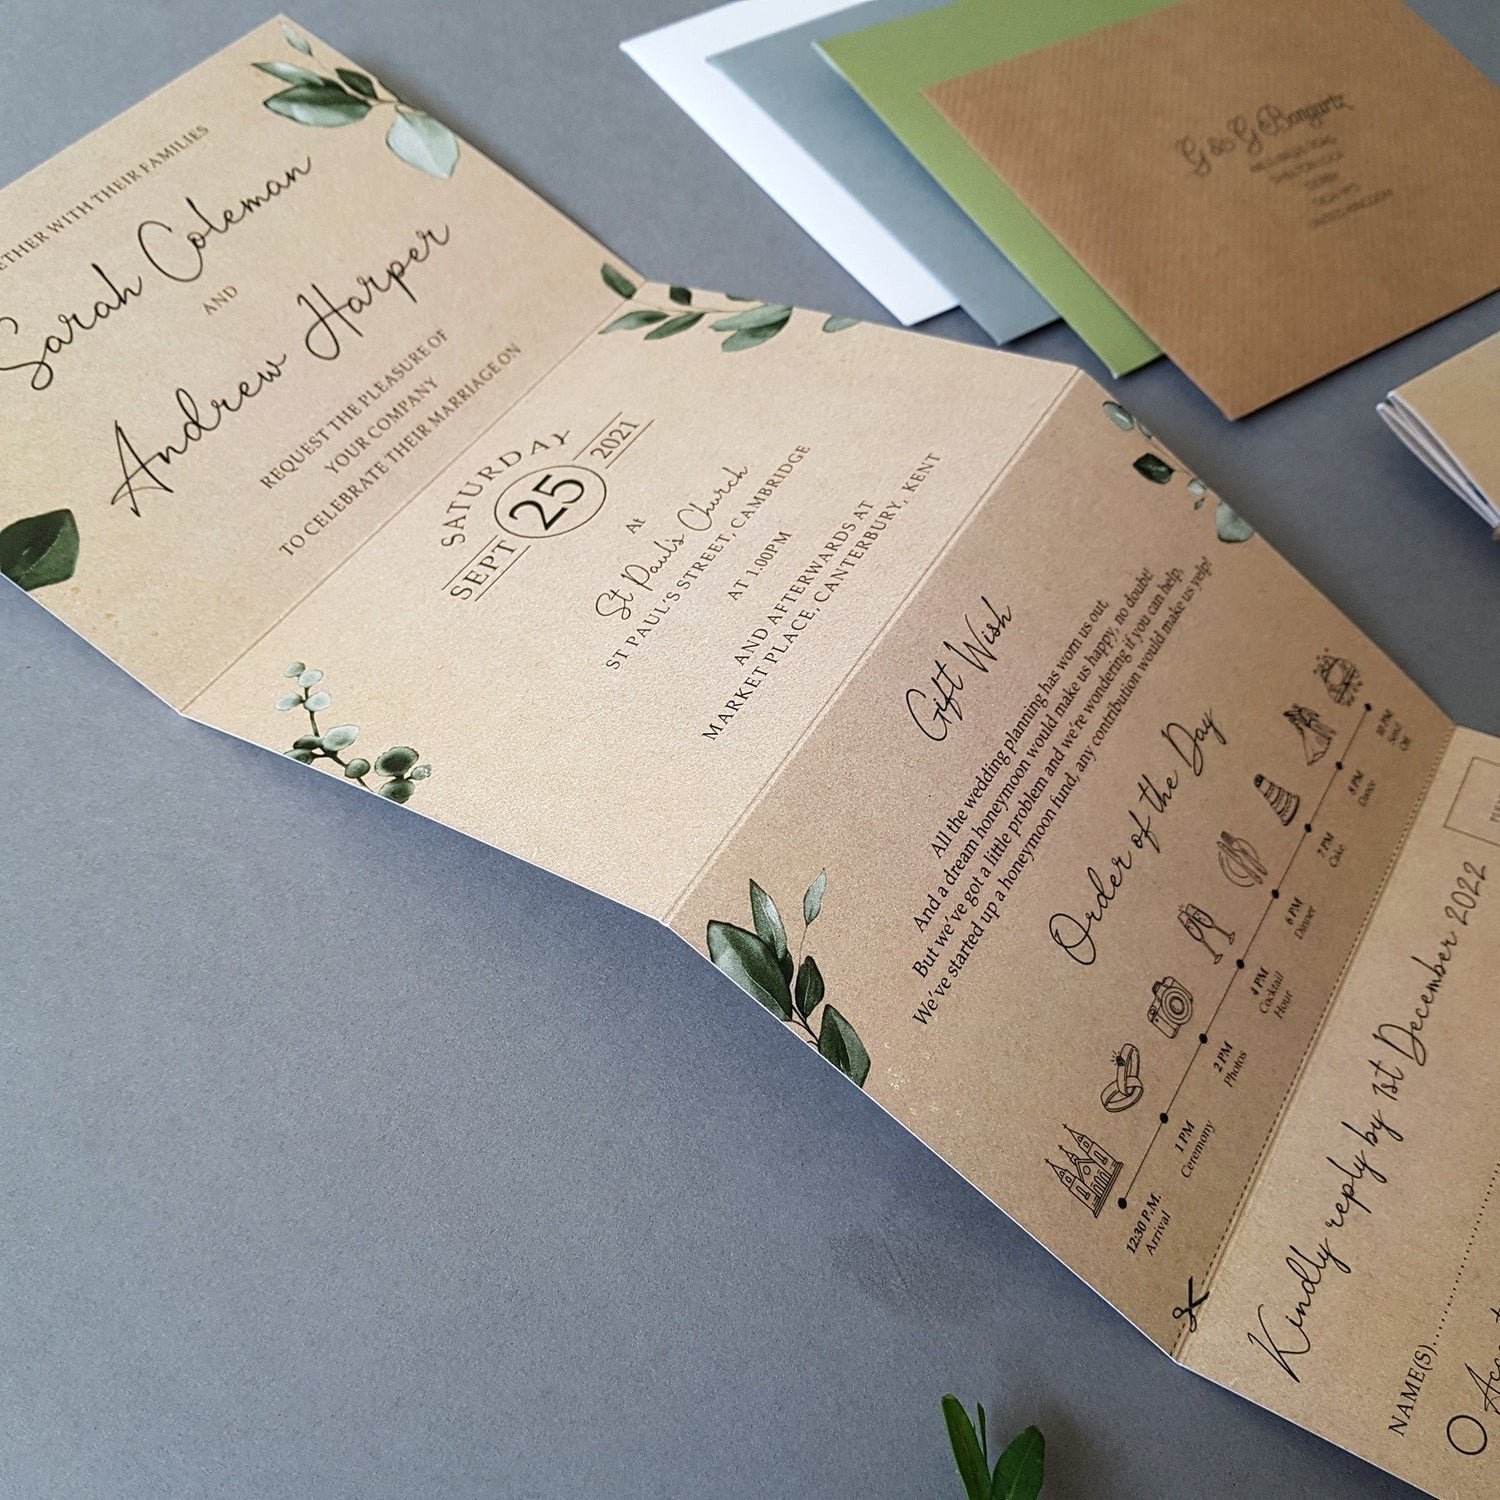 TOGETHER WITH THEIR FAMILIES
Sarah Coleman
AND
Andrew Harper
REQUEST THE PLEASURE OF
YOUR COMPANY
TO CELEBRATE THEIR MARRIAGE ON
SATURDAY
SEPT 25 2021
At
St Paul's Church
ST PAUL'S STREET, CAMBRIDGE
AT 1.00PM
AND AFTERWARDS AT
MARKET PLACE, CANTERBURY, KENT
Gift Wish
All the wedding planning has worn us out,
And a dream honeymoon would make us happy, no doubt!
But we've got a little problem and we're wondering if you can help,
We've started up a honeymoon fund, any contribution would make us yelp!
Order of the Day
12:30 P.M.
Arrival
1 PM
Ceremony
2 PM
Photos
4 PM
Cocktail
Hour
6 PM
Dinner
7 PM
Cake
8 PM
Dance
10 PM
Send
Off
Kindly reply by 1st December 2022
NAME(S)
G & G Bongartz